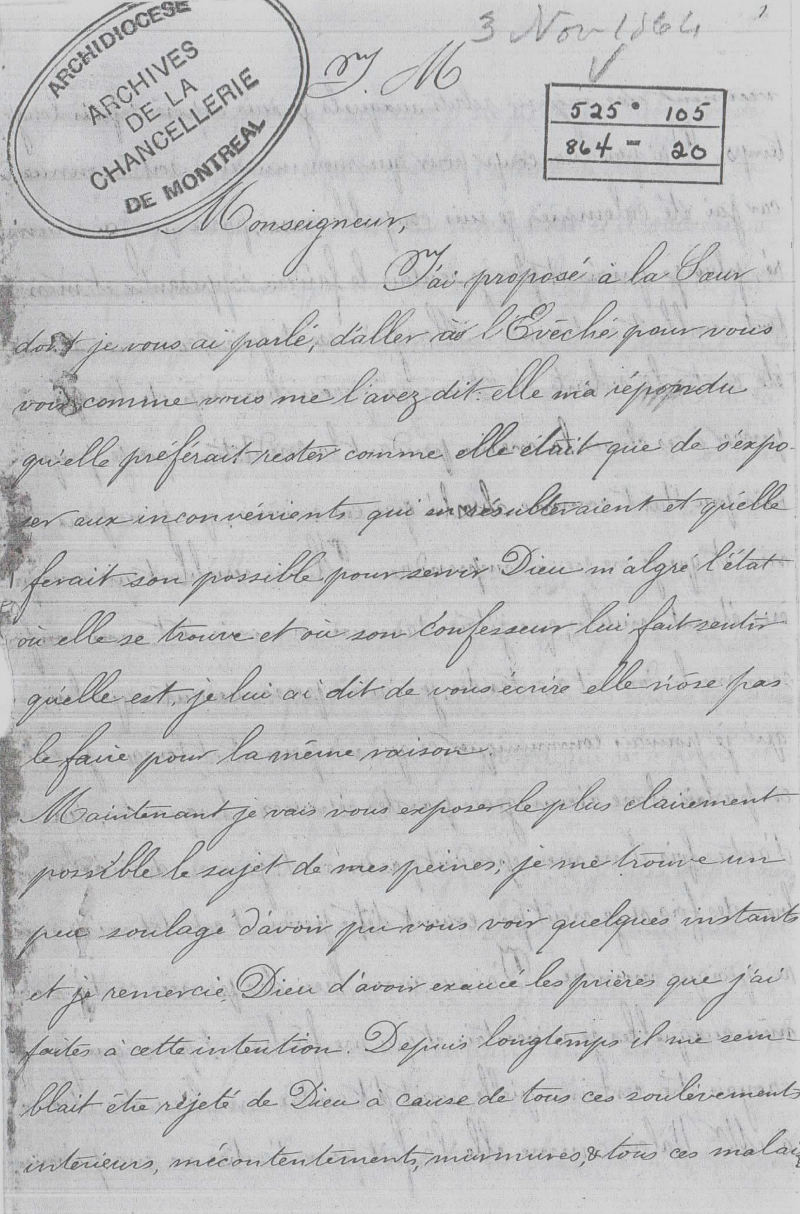 3 Nov 1864
ARCHIDIOCESE
ARCHIVES
DE LA
CHANCELLERIE
DE MONTREAL
J. M
525 • 105
864 - 20
Monseigneur,
J'ai proposé à la Sœur
dont je vous ai parlé, d'aller à l'Evêché pour vous
voir comme vous me l'avez dit. elle m'a répondu
qu'elle préférait rester comme elle était que de s'expo-
ser aux inconvénients qui en résulteraient et qu'elle
ferait son possible pour servir Dieu malgré l'état
où elle se trouve et où son Confesseur lui fait sentir
qu'elle est, je lui ai dit de vous écrire elle n'ose pas
le faire pour la même raison.
Maintenant je vais vous exposer le plus clairement
possible le sujet de mes peines; je me trouve un
peu soulage d'avoir pu vous voir quelques instants
et je remercie Dieu d'avoir exaucé les prières que j'ai
faites à cette intention. Depuis longtemps il me sem-
blait être rejeté de Dieu à cause de tous ces soulèvements
intérieurs, mécontentements, murmures, & tous ces malai